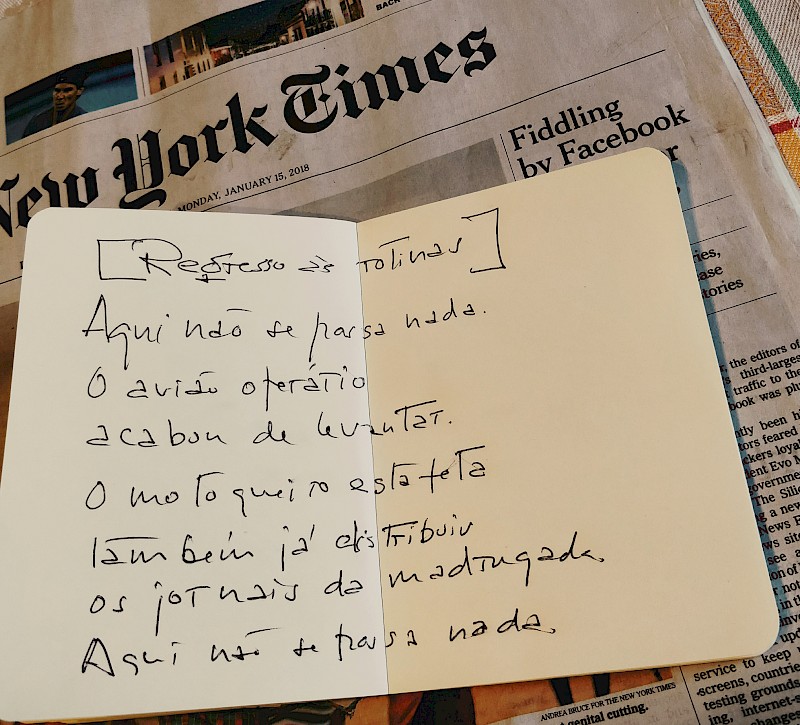 BACK
New York Times
MONDAY, JANUARY 15, 2018
Fiddling
by Facebook
r
[Regresso às rotinas]
Aqui não se passa nada.
O avião operário
acabou de levantar.
O motoqueiro estafeta
também já distribuiu
os jornais da madrugada.
Aqui não se passa nada.
ries,
ase
tories
, the editors of
third-larges
traffic to the
book was ph
ntly been h
tors feared
ckers loya
dent Evo M
governme
The Sili
g a new
News F
ws site
see a
ion of
not
in th
upd
service to keep
-screens, countrie
testing grounds
ing, internet-s
ANDREA BRUCE FOR THE NEW YORK TIMES
genital cutting.